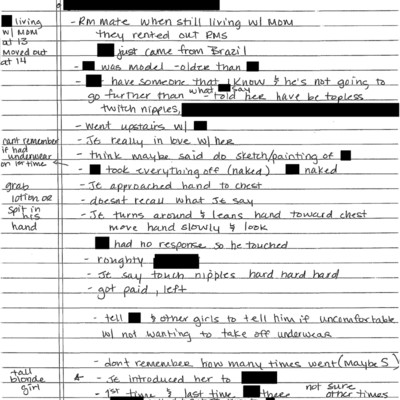 living
w/ mom
at 13
moved out
at 14
- Rm mate when still living w/ Mom
they rented out RMS
just came from Brazil
- was model - older than
- have someone that I know & he's not going to
go further than what say - told her have be topless
twitch nipples,
- Went upstairs w/
- JE really in love w/ her
cant remember
if had
underwear
on 1st time
- think maybe said do sketch/painting of
- took everything off (naked) naked
grab
lotion or
spit in
his
hand
- JE approached hand to chest
- doesnt recall what JE say
- JE turns around & leans hand toward chest
move hand slowly & look
had no response so he touched
- roughty
- JE say touch nipples hard hard hard
- got paid, left
- tell & other girls to tell him if uncomfortable
w/ not wanting to take off underwear
- dont remember how many times went (maybe 5)
tall
blonde
girl
- JE introduced her to
- 1st time & last time there not sure other times